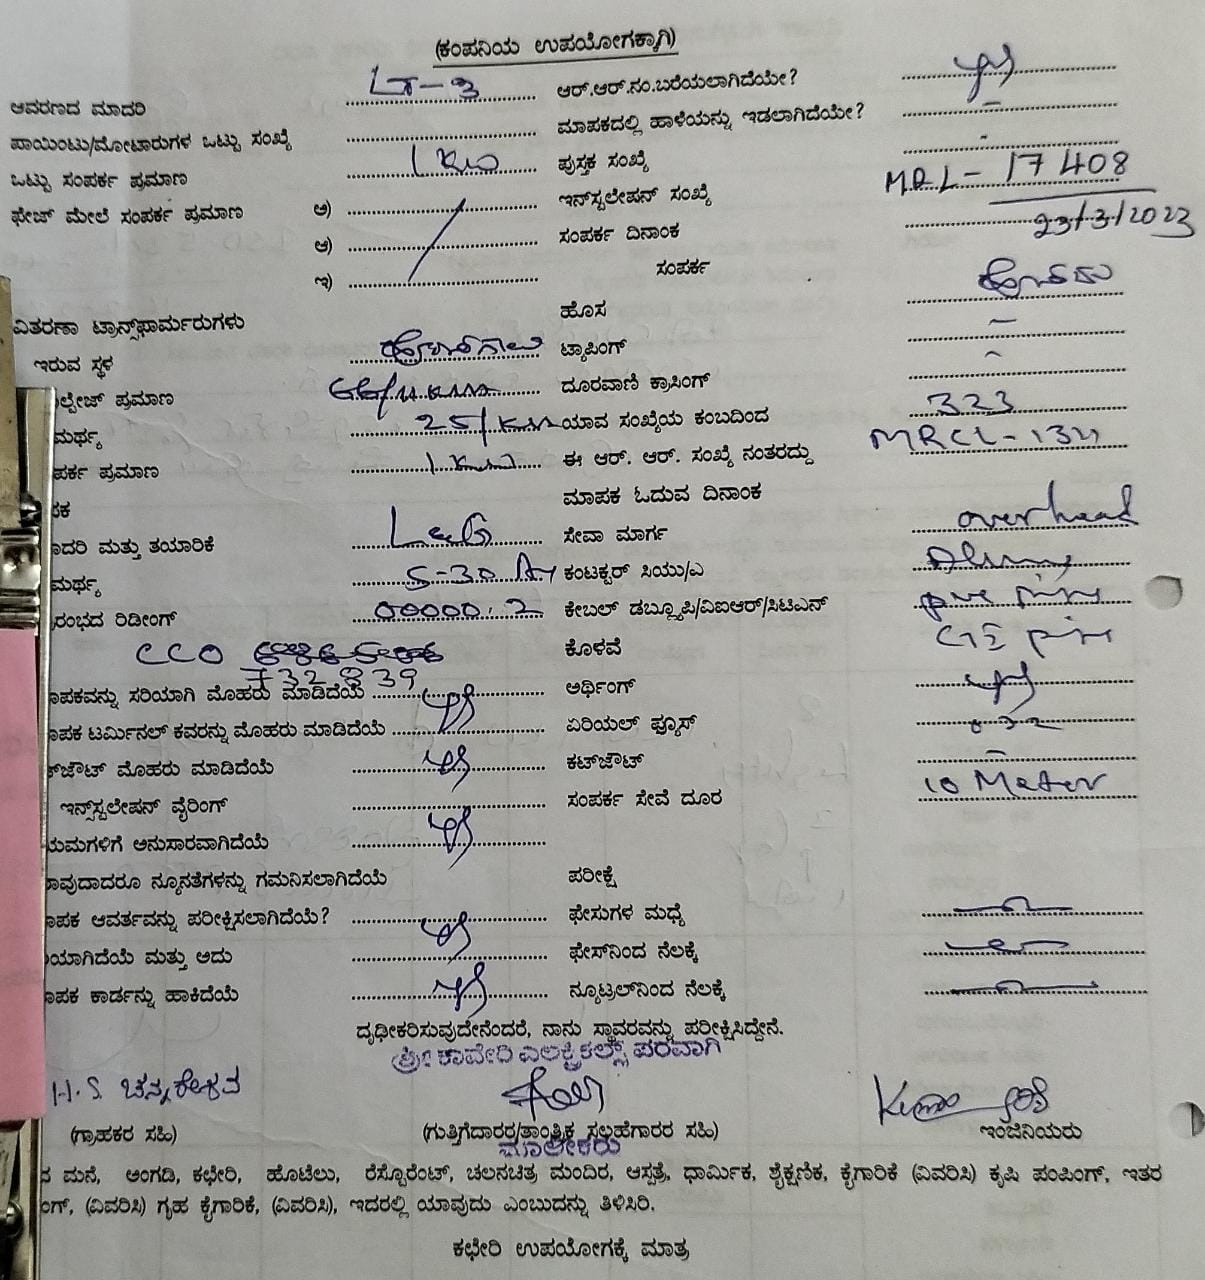 (ಕಂಪನಿಯ ಉಪಯೋಗಕ್ಕಾಗಿ)
ಆವರಣದ ಮಾದರಿ LT-3 ಆರ್.ಆರ್.ನಂ.ಬರೆಯಲಾಗಿದೆಯೇ?
ಪಾಯಿಂಟು/ಮೋಟಾರುಗಳ ಒಟ್ಟು ಸಂಖ್ಯೆ ಮಾಪಕದಲ್ಲಿ ಹಾಳೆಯನ್ನು ಇಡಲಾಗಿದೆಯೇ? -
ಒಟ್ಟು ಸಂಪರ್ಕ ಪ್ರಮಾಣ 1 KW ಪುಸ್ತಕ ಸಂಖ್ಯೆ -
ಫೇಜ್ ಮೇಲೆ ಸಂಪರ್ಕ ಪ್ರಮಾಣ ಅ) ಇನ್‌ಸ್ಟಲೇಷನ್ ಸಂಖ್ಯೆ MRL - 17408
ಆ) ಸಂಪರ್ಕ ದಿನಾಂಕ 23/3/2023
ಇ) ಸಂಪರ್ಕ
ವಿತರಣಾ ಟ್ರಾನ್ಸ್‌ಫಾರ್ಮರುಗಳು ಹೊಸ
ಇರುವ ಸ್ಥಳ ಟ್ಯಾಪಿಂಗ್ -
ಲ್ಟೇಜ್ ಪ್ರಮಾಣ ದೂರವಾಣಿ ಕ್ರಾಸಿಂಗ್ -
ಮರ್ಥ್ಯ 25/ ಯಾವ ಸಂಖ್ಯೆಯ ಕಂಬದಿಂದ 323
ಪರ್ಕ ಪ್ರಮಾಣ 1 KW ಈ ಆರ್. ಆರ್. ಸಂಖ್ಯೆ ನಂತರದ್ದು
ಪಕ ಮಾಪಕ ಓದುವ ದಿನಾಂಕ
ಾದರಿ ಮತ್ತು ತಯಾರಿಕೆ L&G ಸೇವಾ ಮಾರ್ಗ overhead
ಮರ್ಥ್ಯ 5-30 A ಕಂಟಕ್ಟರ್ ಸಿಯು/ಎ
ರಂಭದ ರಿಡೀಂಗ್ 00000.2 ಕೇಬಲ್ ಡಬ್ಲ್ಯೂಪಿ/ವಿಐಆರ್/ಸಿಟಿಎಸ್
CCO ಕೊಳವೆ
732839
ಾಪಕವನ್ನು ಸರಿಯಾಗಿ ಮೊಹರು ಮಾಡಿದೆಯೆ ಅರ್ಥಿಂಗ್
ಾಪಕ ಟರ್ಮಿನಲ್ ಕವರನ್ನು ಮೊಹರು ಮಾಡಿದೆಯೆ ಏರಿಯಲ್ ಫ್ಯೂಸ್
ಕ್‌ಜೌಟ್ ಮೊಹರು ಮಾಡಿದೆಯೆ ಕಟ್‌ಜೌಟ್ -
ಇನ್ಸ್‌ಸ್ಟಲೇಷನ್ ವೈರಿಂಗ್ ಸಂಪರ್ಕ ಸೇವೆ ದೂರ 10 Meter
ಯಮಗಳಿಗೆ ಅನುಸಾರವಾಗಿದೆಯೆ
ಾವುದಾದರೂ ನ್ಯೂನತೆಗಳನ್ನು ಗಮನಿಸಲಾಗಿದೆಯೆ ಪರೀಕ್ಷೆ
ಾಪಕ ಆವರ್ತವನ್ನು ಪರೀಕ್ಷಿಸಲಾಗಿದೆಯೆ? ಫೇಸುಗಳ ಮಧ್ಯೆ
ಯಾಗಿದೆಯೆ ಮತ್ತು ಅದು ಫೇಸ್‌ನಿಂದ ನೆಲಕ್ಕೆ
ಾಪಕ ಕಾರ್ಡನ್ನು ಹಾಕಿದೆಯೆ ನ್ಯೂಟ್ರಲ್‌ನಿಂದ ನೆಲಕ್ಕೆ
ದೃಢೀಕರಿಸುವುದೇನೆಂದರೆ, ನಾನು ಸ್ಥಾವರವನ್ನು ಪರೀಕ್ಷಿಸಿದ್ದೇನೆ.
ಶ್ರೀ ಕಾವೇರಿ ಎಲಕ್ಟ್ರಿಕಲ್ಸ್ ಪರವಾಗಿ
H.S ಚನ್ನಕೇಶವ
(ಗ್ರಾಹಕರ ಸಹಿ) (ಗುತ್ತಿಗೆದಾರರ/ತಾಂತ್ರಿಕ ಸಲಹೆಗಾರರ ಸಹಿ) ಇಂಜಿನಿಯರು
ಮಾಲೀಕರು
ಮನೆ, ಅಂಗಡಿ, ಕಛೇರಿ, ಹೊಟೆಲು, ರೆಸ್ಟೊರೆಂಟ್, ಚಲನಚಿತ್ರ ಮಂದಿರ, ಆಸ್ಪತ್ರೆ, ಧಾರ್ಮಿಕ, ಶೈಕ್ಷಣಿಕ, ಕೈಗಾರಿಕೆ (ವಿವರಿಸಿ) ಕೃಷಿ ಪಂಪಿಂಗ್, ಇತರ
ಂಗ್, (ವಿವರಿಸಿ) ಗೃಹ ಕೈಗಾರಿಕೆ, (ವಿವರಿಸಿ), ಇದರಲ್ಲಿ ಯಾವುದು ಎಂಬುದನ್ನು ತಿಳಿಸಿರಿ.
ಕಛೇರಿ ಉಪಯೋಗಕ್ಕೆ ಮಾತ್ರ